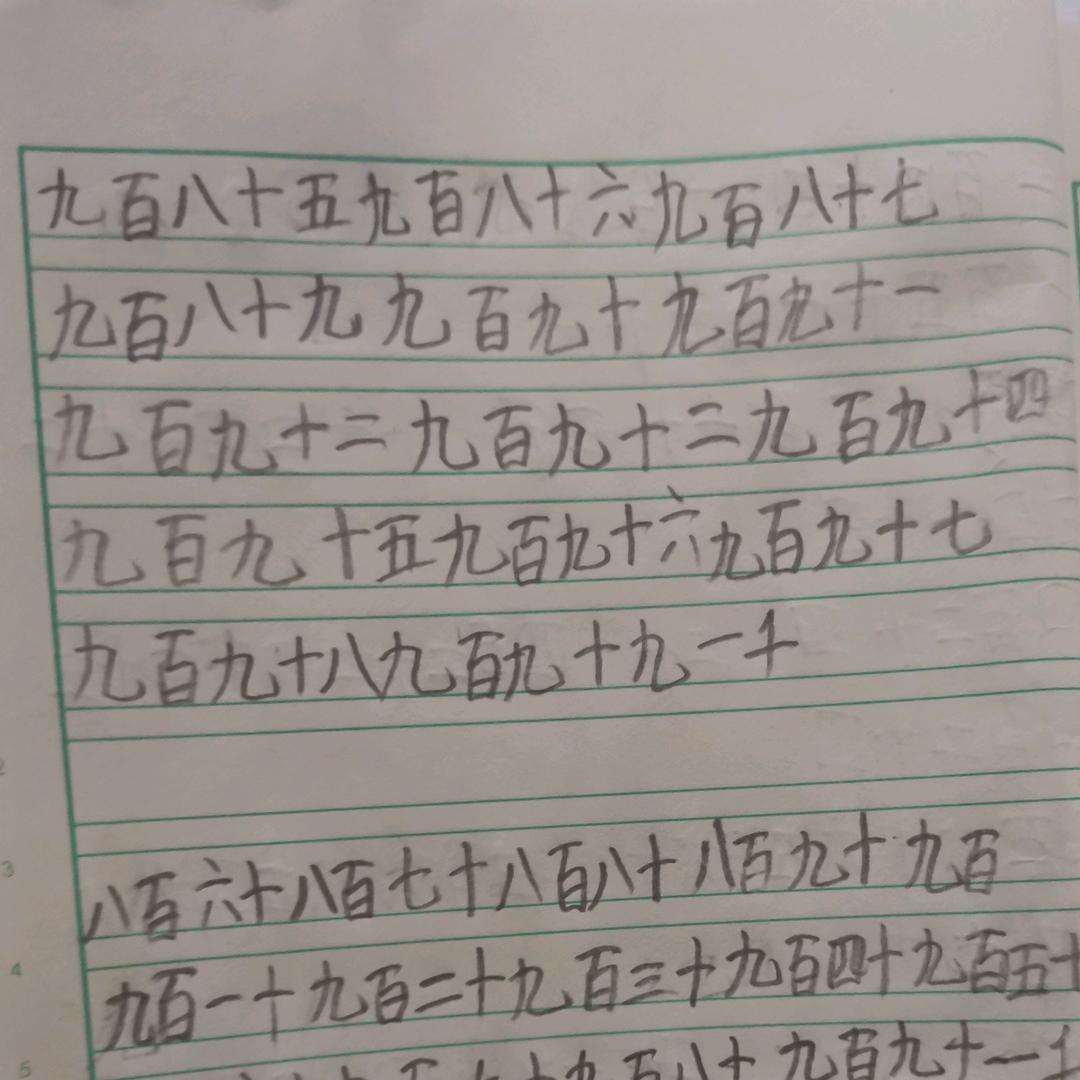 九百八十五九百八十六九百八十七
九百八十九九百九十九百九十一
九百九十二九百九十二九百九十四
九百九十五九百九十六九百九十七
九百九十八九百九十九一千
八百六十八百七十八百八十八百九十九百
九百一十九百二十九百三十九百四十九百五十
九百八十九百九十一千
2
3
4
5